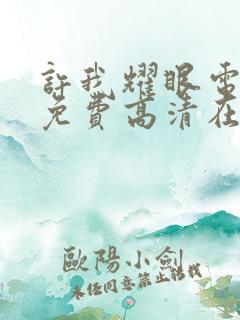 許我耀眼電
免費高清在
歐陽小劍
未经同意禁止转载